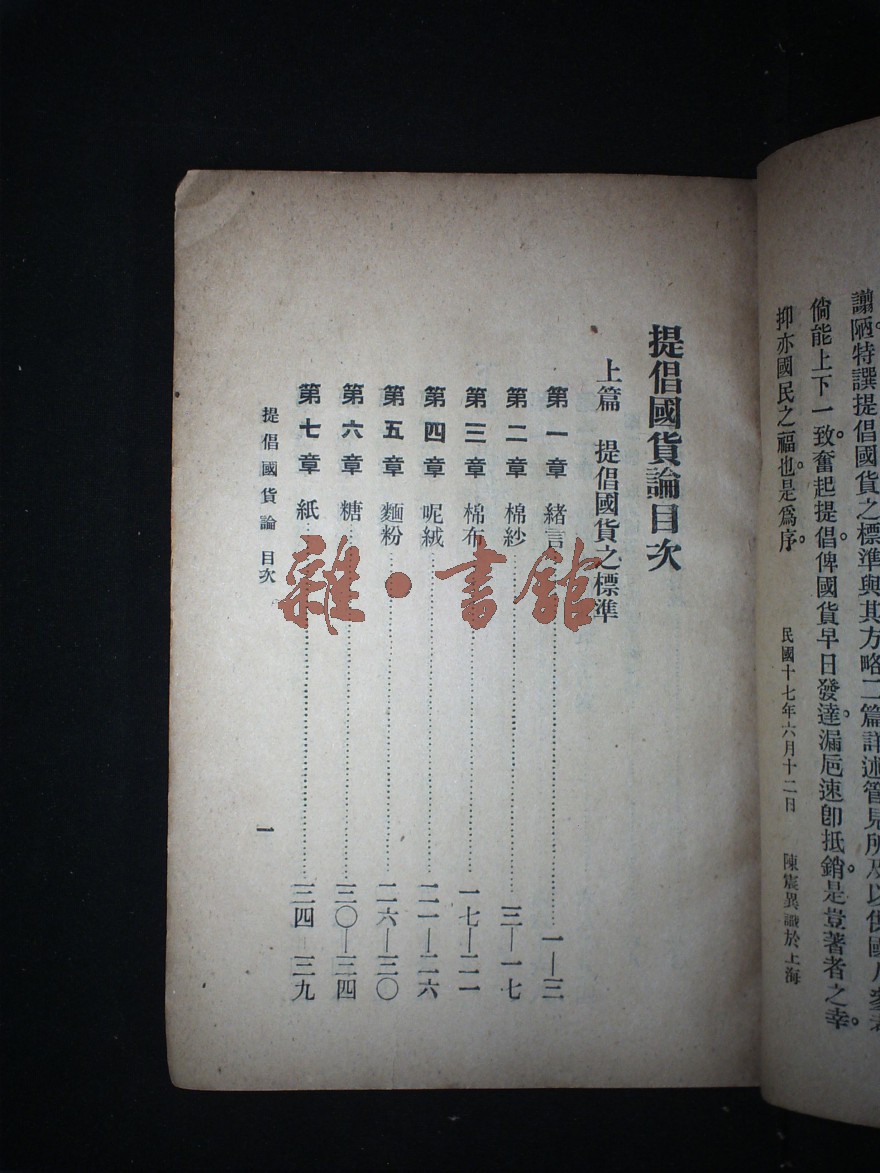 讓陋特譔提倡國貨之標準與其方略二篇詳述管見所及以供國人參考
倘能上下一致奮起提倡俾國貨早日發達漏巵速卽抵銷是豈著者之幸
抑亦國民之福也是爲序
民國十七年六月十二日　陳震異識於上海
提倡國貨論目次
上篇　提倡國貨之標準
第一章　緒言……一—三
第二章　棉紗……三—一七
第三章　棉布……一七—二一
第四章　呢絨……二一—二六
第五章　麵粉……二六—三〇
第六章　糖……三〇—三四
第七章　紙……三四—三九
提倡國貨論　目次
一
雜·書館